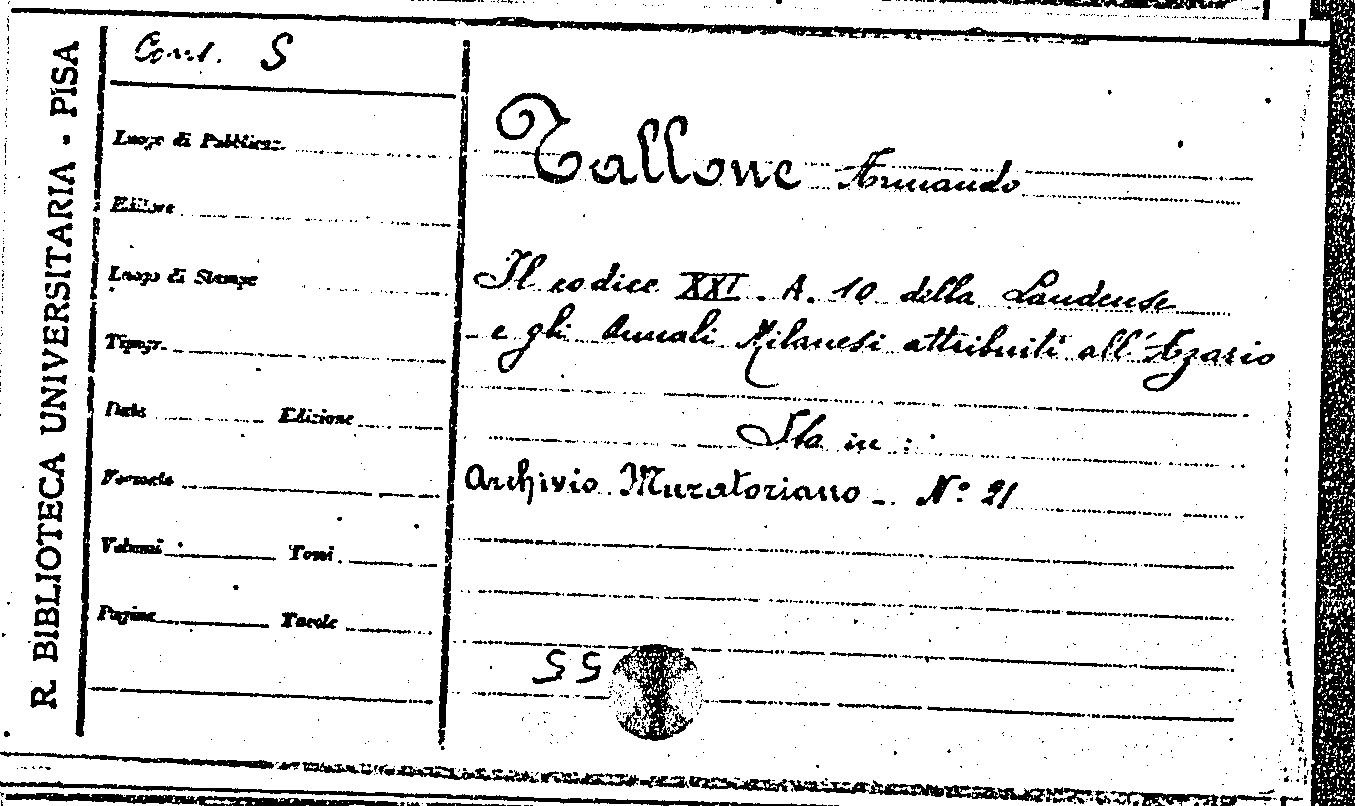 R. BIBLIOTECA UNIVERSITARIA - PISA
Cont. S
Luogo di Pubblicaz.
Editore
Luogo di Stampa
Tipogr.
Data Edizione
Formato
Volumi Tomi
Pagine Tavole
Tallone Armando
Il codice XXI. A. 10 della Laudense
e gli Annali Milanesi attribuiti all'Azario
Sta in:
Archivio Muratoriano - N° 21
55